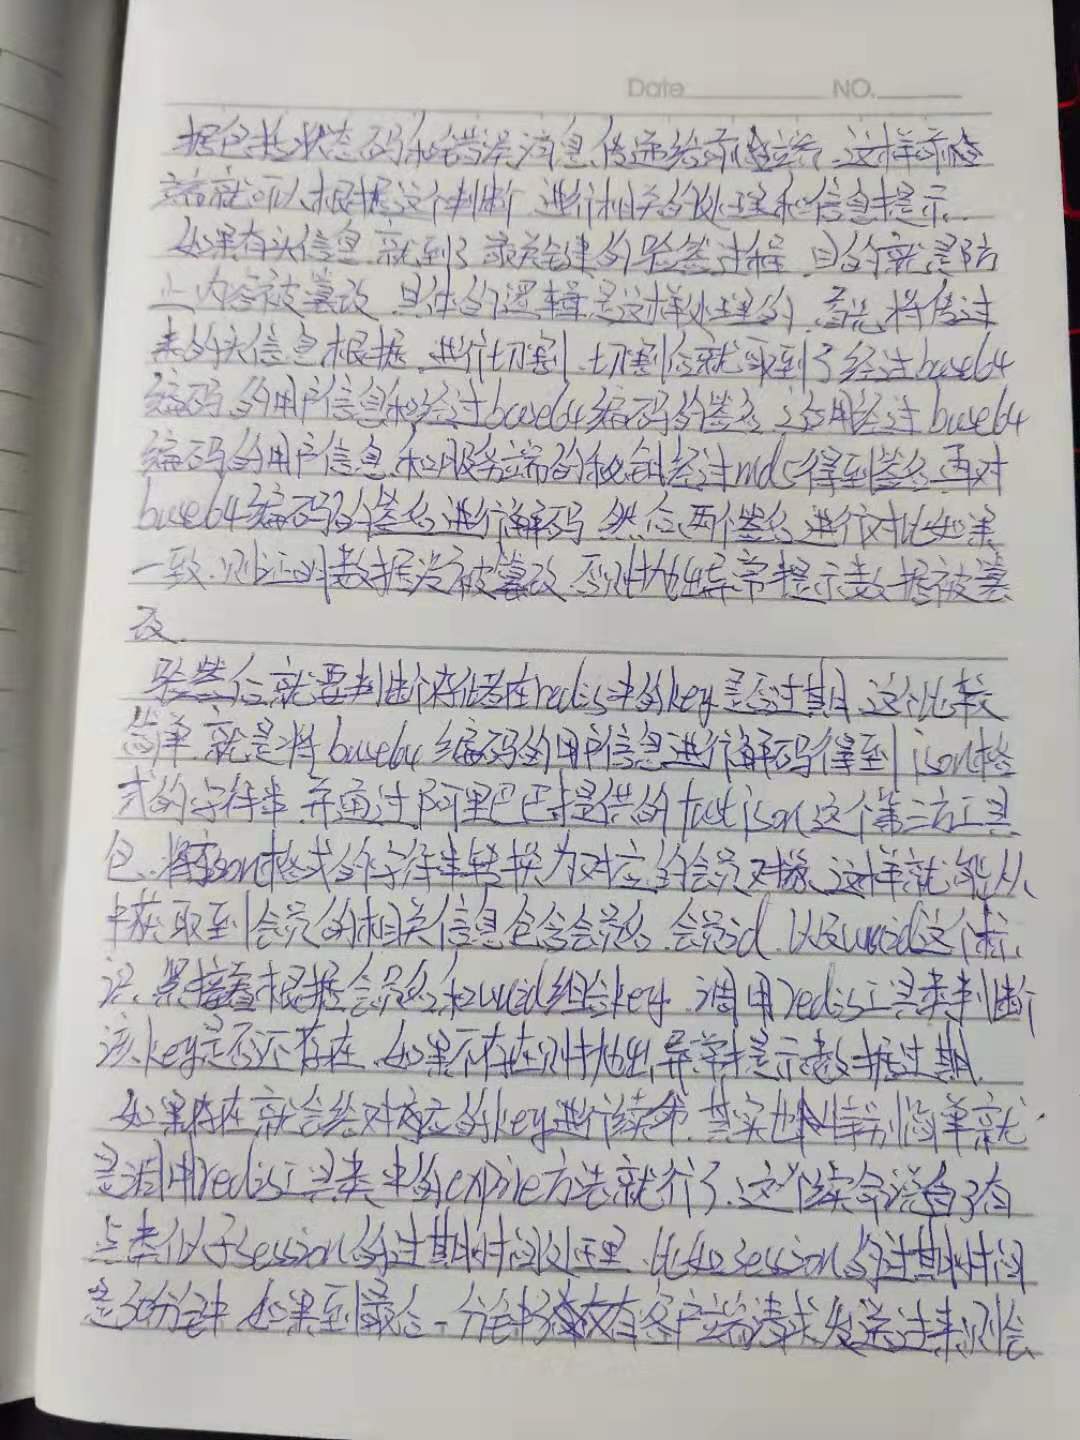 Date NO.
据包括状态码和错误消息传递给前端,这样前
端就可以根据这个判断,进行相关的处理和信息提示.
如果有头信息,就到了最关键的验签过程,目的就是防
止内容被篡改,具体的逻辑是这样处理的,首先将传过
来的头信息根据.进行切割,切割后就取到了经过base64
编码的用户信息和经过base64编码的签名,这用经过base64
编码的用户信息和服务端的秘钥经过md5得到签名,再对
base64编码的签名进行解码,然后两个签名进行对比如果
一致,则证明数据没被篡改,否则抛出异常提示数据被篡
改.
验签后就要判断存储在redis中的key是否过期,这个比较
简单,就是将base64编码的用户信息进行解码得到json格
式的字符串,并通过阿里巴巴提供的fastjson这个第三方工具
包,将json格式的字符串转换为对应的会员对象,这样就能从
中获取到会员的相关信息包含会员名,会员id,以及uuid这个标
识,紧接着根据会员名和uuid组合key,调用redis工具类判断
该key是否还存在,如果不存在则抛出异常提示数据过期.
如果存在就会给对应的key进行续命,其实也特别简单就
是调用redis工具类中的expire方法就行了.这个续命说白了有
点类似于session的过期时间处理,比如session的过期时间
是30分钟,如果到最后一分钟没有客户端请求发送过来,则会